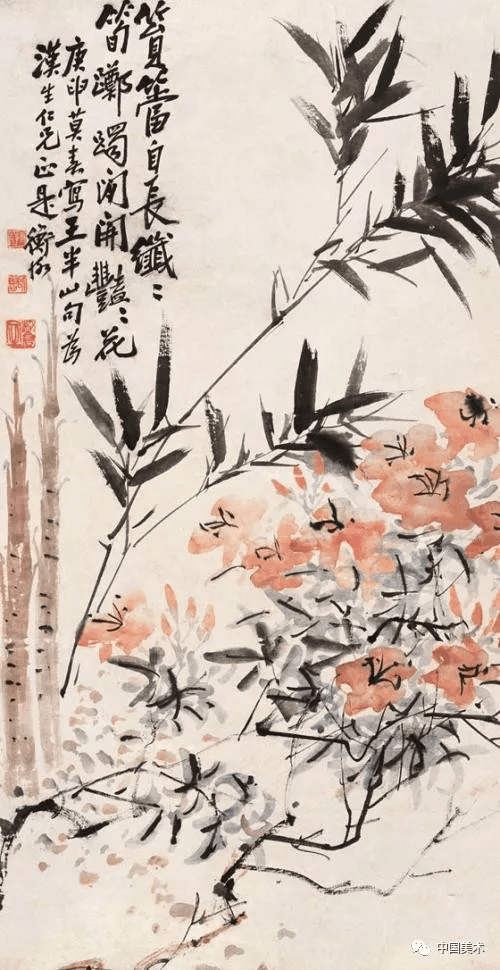 篔簹自長纖〻
筍躑躅閒開豔〻花
庚申莫春寫王半山句為
漢生仁兄正是 衡恪
中国美术